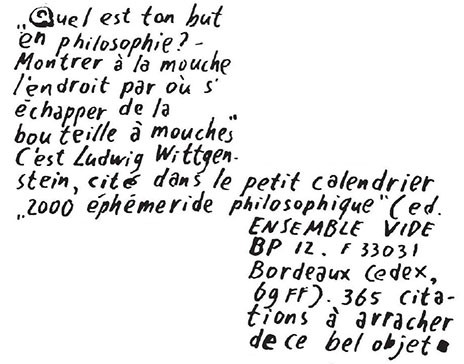 „Quel est ton but
en philosophie? -
Montrer à la mouche
l'endroit par où s'
échapper de la
bouteille à mouches"
C'est Ludwig Wittgen-
stein, cité dans le petit calendrier
„2000 éphémeride philosophique" (ed.
ENSEMBLE VIDE
BP 12. F 33031
Bordeaux Cedex,
69 FF). 365 cita-
tions à arracher
de ce bel objet.